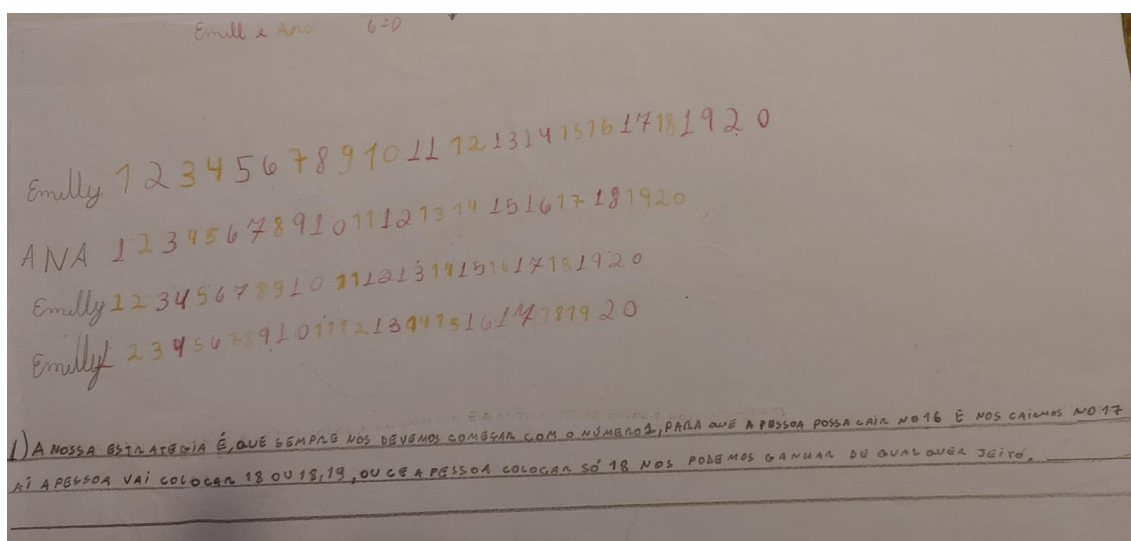 Emill e Ana 6=0
Emilly 1 2 3 4 5 6 7 8 9 10 11 12 13 14 15 16 17 18 19 20
ANA 1 2 3 4 5 6 7 8 9 10 11 12 13 14 15 16 17 18 19 20
Emilly 1 2 3 4 5 6 7 8 9 10 11 12 13 14 15 16 17 18 19 20
Emilly 1 2 3 4 5 6 7 8 9 10 11 12 13 14 15 16 17 18 19 20
1) A NOSSA ESTRATEGIA É, QUE SEMPRE NOS DEVEMOS COMEÇAR COM O NÚMERO 2, PARA QUE A PESSOA POSSA CAIR NO 16 E NOS CAIRMOS NO 17
AÍ A PESSOA VAI COLOCAR 18 OU 18,19, OU CE A PESSOA COLOCAR SÓ 18 NOS PODEMOS GANHAR DE QUALQUER JEITO.